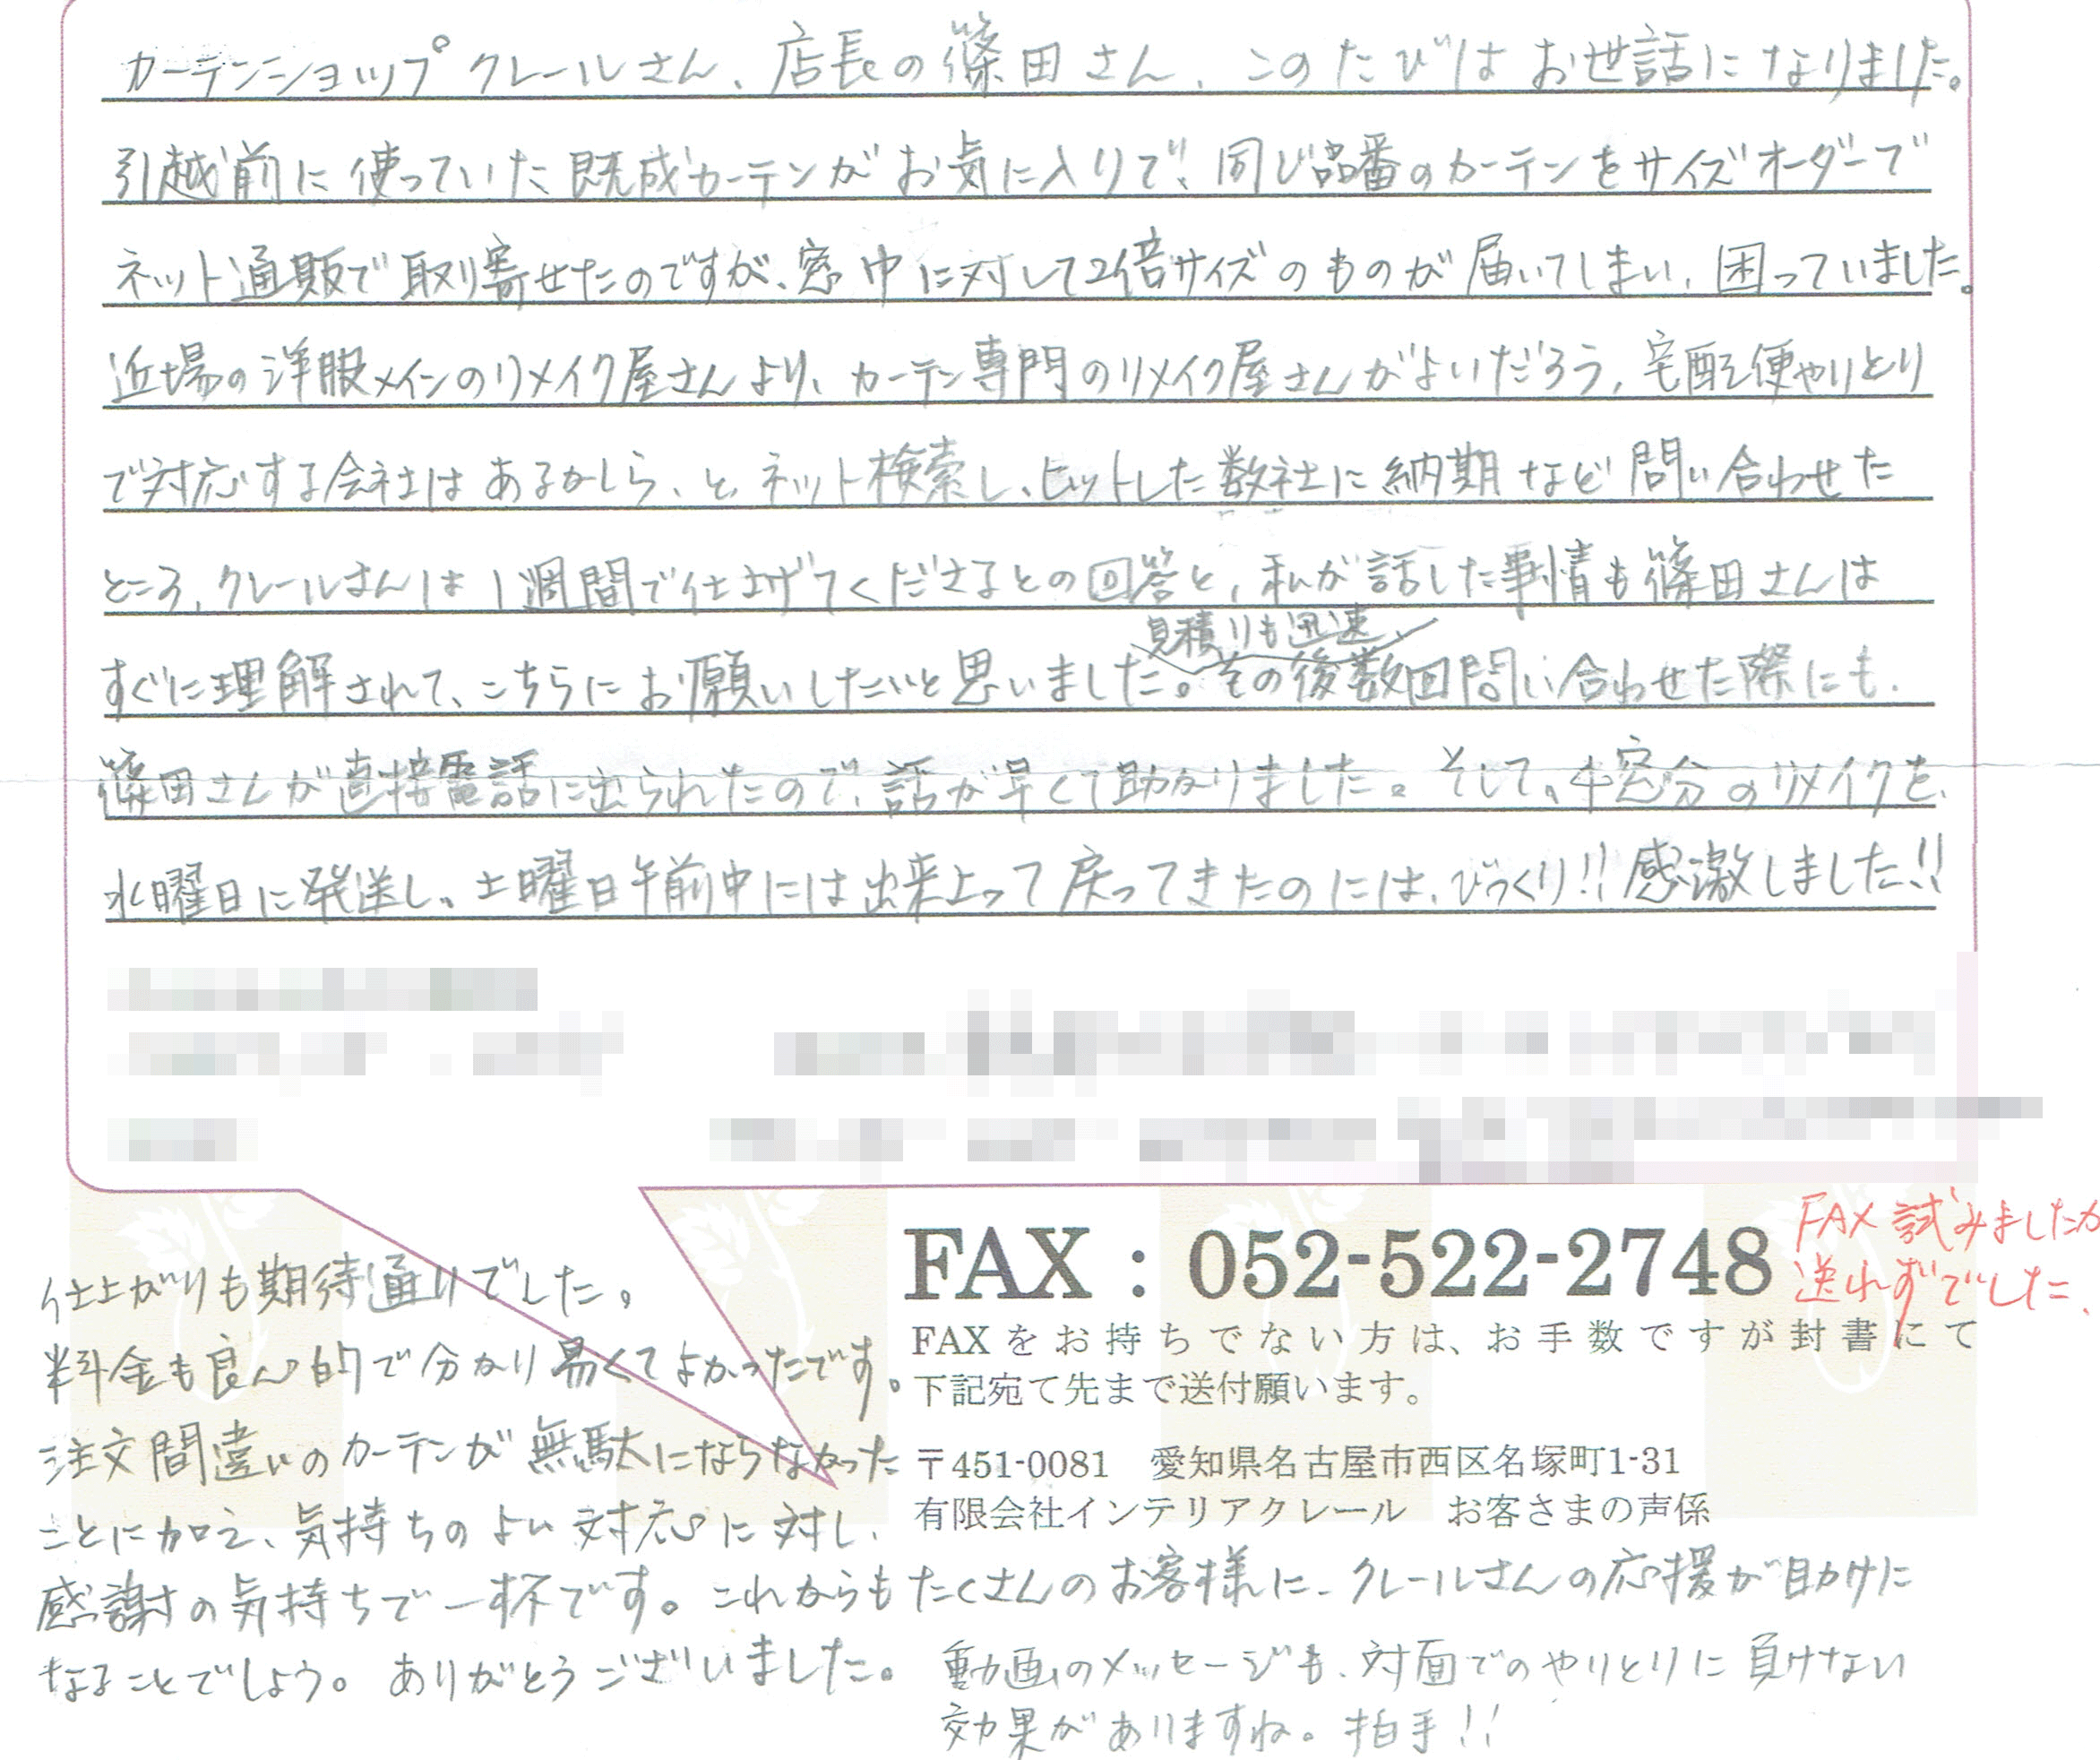 カーテンショップクレールさん、店長の篠田さん、このたびはお世話になりました。
引越前に使っていた既成カーテンがお気に入りで、同じ品番のカーテンをサイズオーダーで
ネット通販で取り寄せたのですが、窓巾に対して2倍サイズのものが届いてしまい、困っていました。
近場の洋服メインのリメイク屋さんより、カーテン専門のリメイク屋さんがよいだろう、宅配便やりとり
で対応する会社はあるかしら、と、ネット検索し、ヒットした数社に納期など問い合わせた
ところ、クレールさんは1週間で仕上げてくださるとの回答と、私が話した事情も篠田さんは
見積りも迅速
すぐに理解されて、こちらにお願いしたいと思いました。その後数回問い合わせた際にも、
篠田さんが直接電話に出られたので、話が早くて助かりました。そして、4窓分のリメイクを、
水曜日に発送し、土曜日午前中には出来上って戻ってきたのには、びっくり!!感激しました!!
FAX:052-522-2748
FAX試みましたが
送れずでした、
FAXをお持ちでない方は、お手数ですが封書にて
下記宛て先まで送付願います。
〒451-0081 愛知県名古屋市西区名塚町1-31
有限会社インテリアクレール お客さまの声係
仕上がりも期待通りでした。
料金も良心的で分かり易くてよかったです。
注文間違いのカーテンが無駄にならなかった
ことに加え、気持ちのよい対応に対し、
感謝の気持ちで一杯です。これからもたくさんのお客様に、クレールさんの応援が助けに
なることでしょう。ありがとうございました。
動画のメッセージも、対面でのやりとりに負けない
効果がありますね。拍手!!